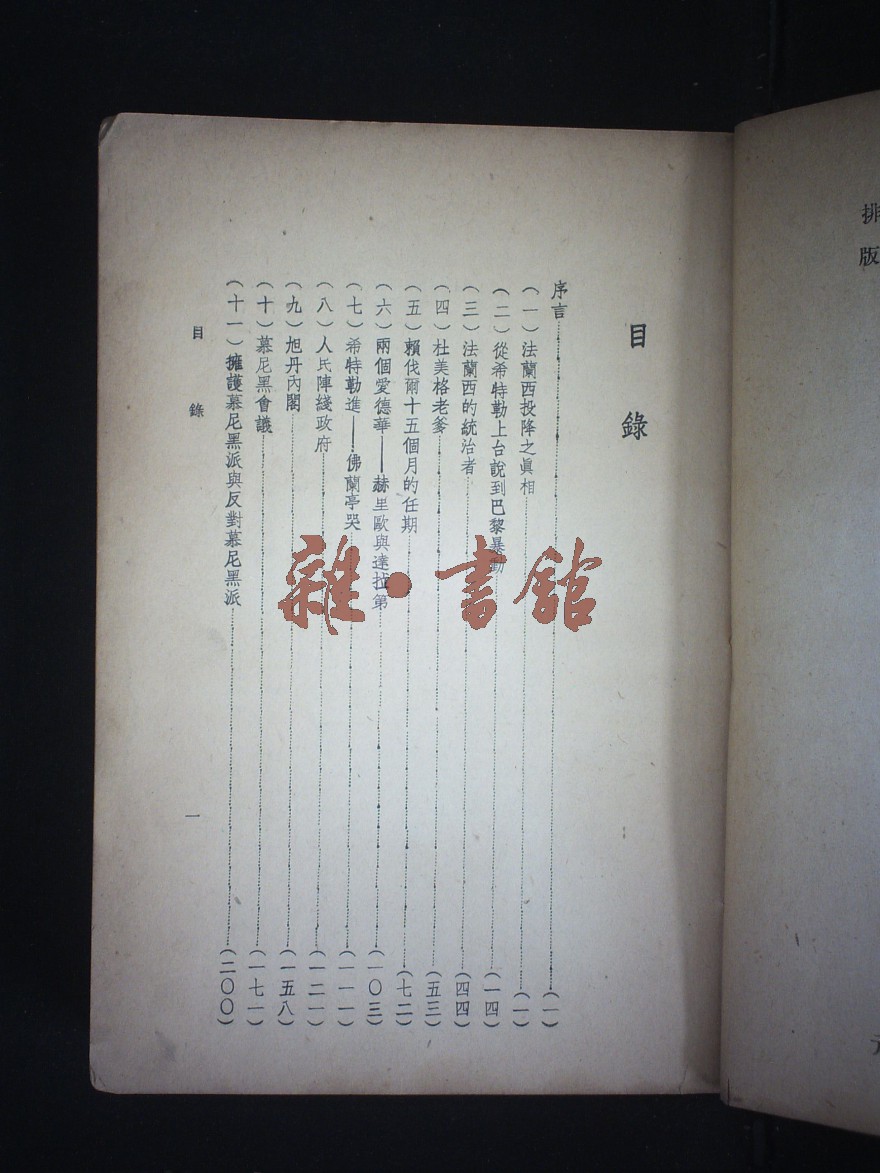 排
版
目錄
序言(一)
(一)法蘭西投降之眞相(一)
(二)從希特勒上台說到巴黎暴動(一四)
(三)法蘭西的統治者(四四)
(四)杜美格老爹(五三)
(五)賴伐爾十五個月的任期(七二)
(六)兩個愛德華——赫里歐與達拉第(一〇三)
(七)希特勒進——佛蘭亭哭(一一一)
(八)人民陣綫政府(一二一)
(九)旭丹內閣(一五八)
(十)慕尼黑會議(一七一)
(十一)擁護慕尼黑派與反對慕尼黑派(二〇〇)
目錄
一
雜·書舘